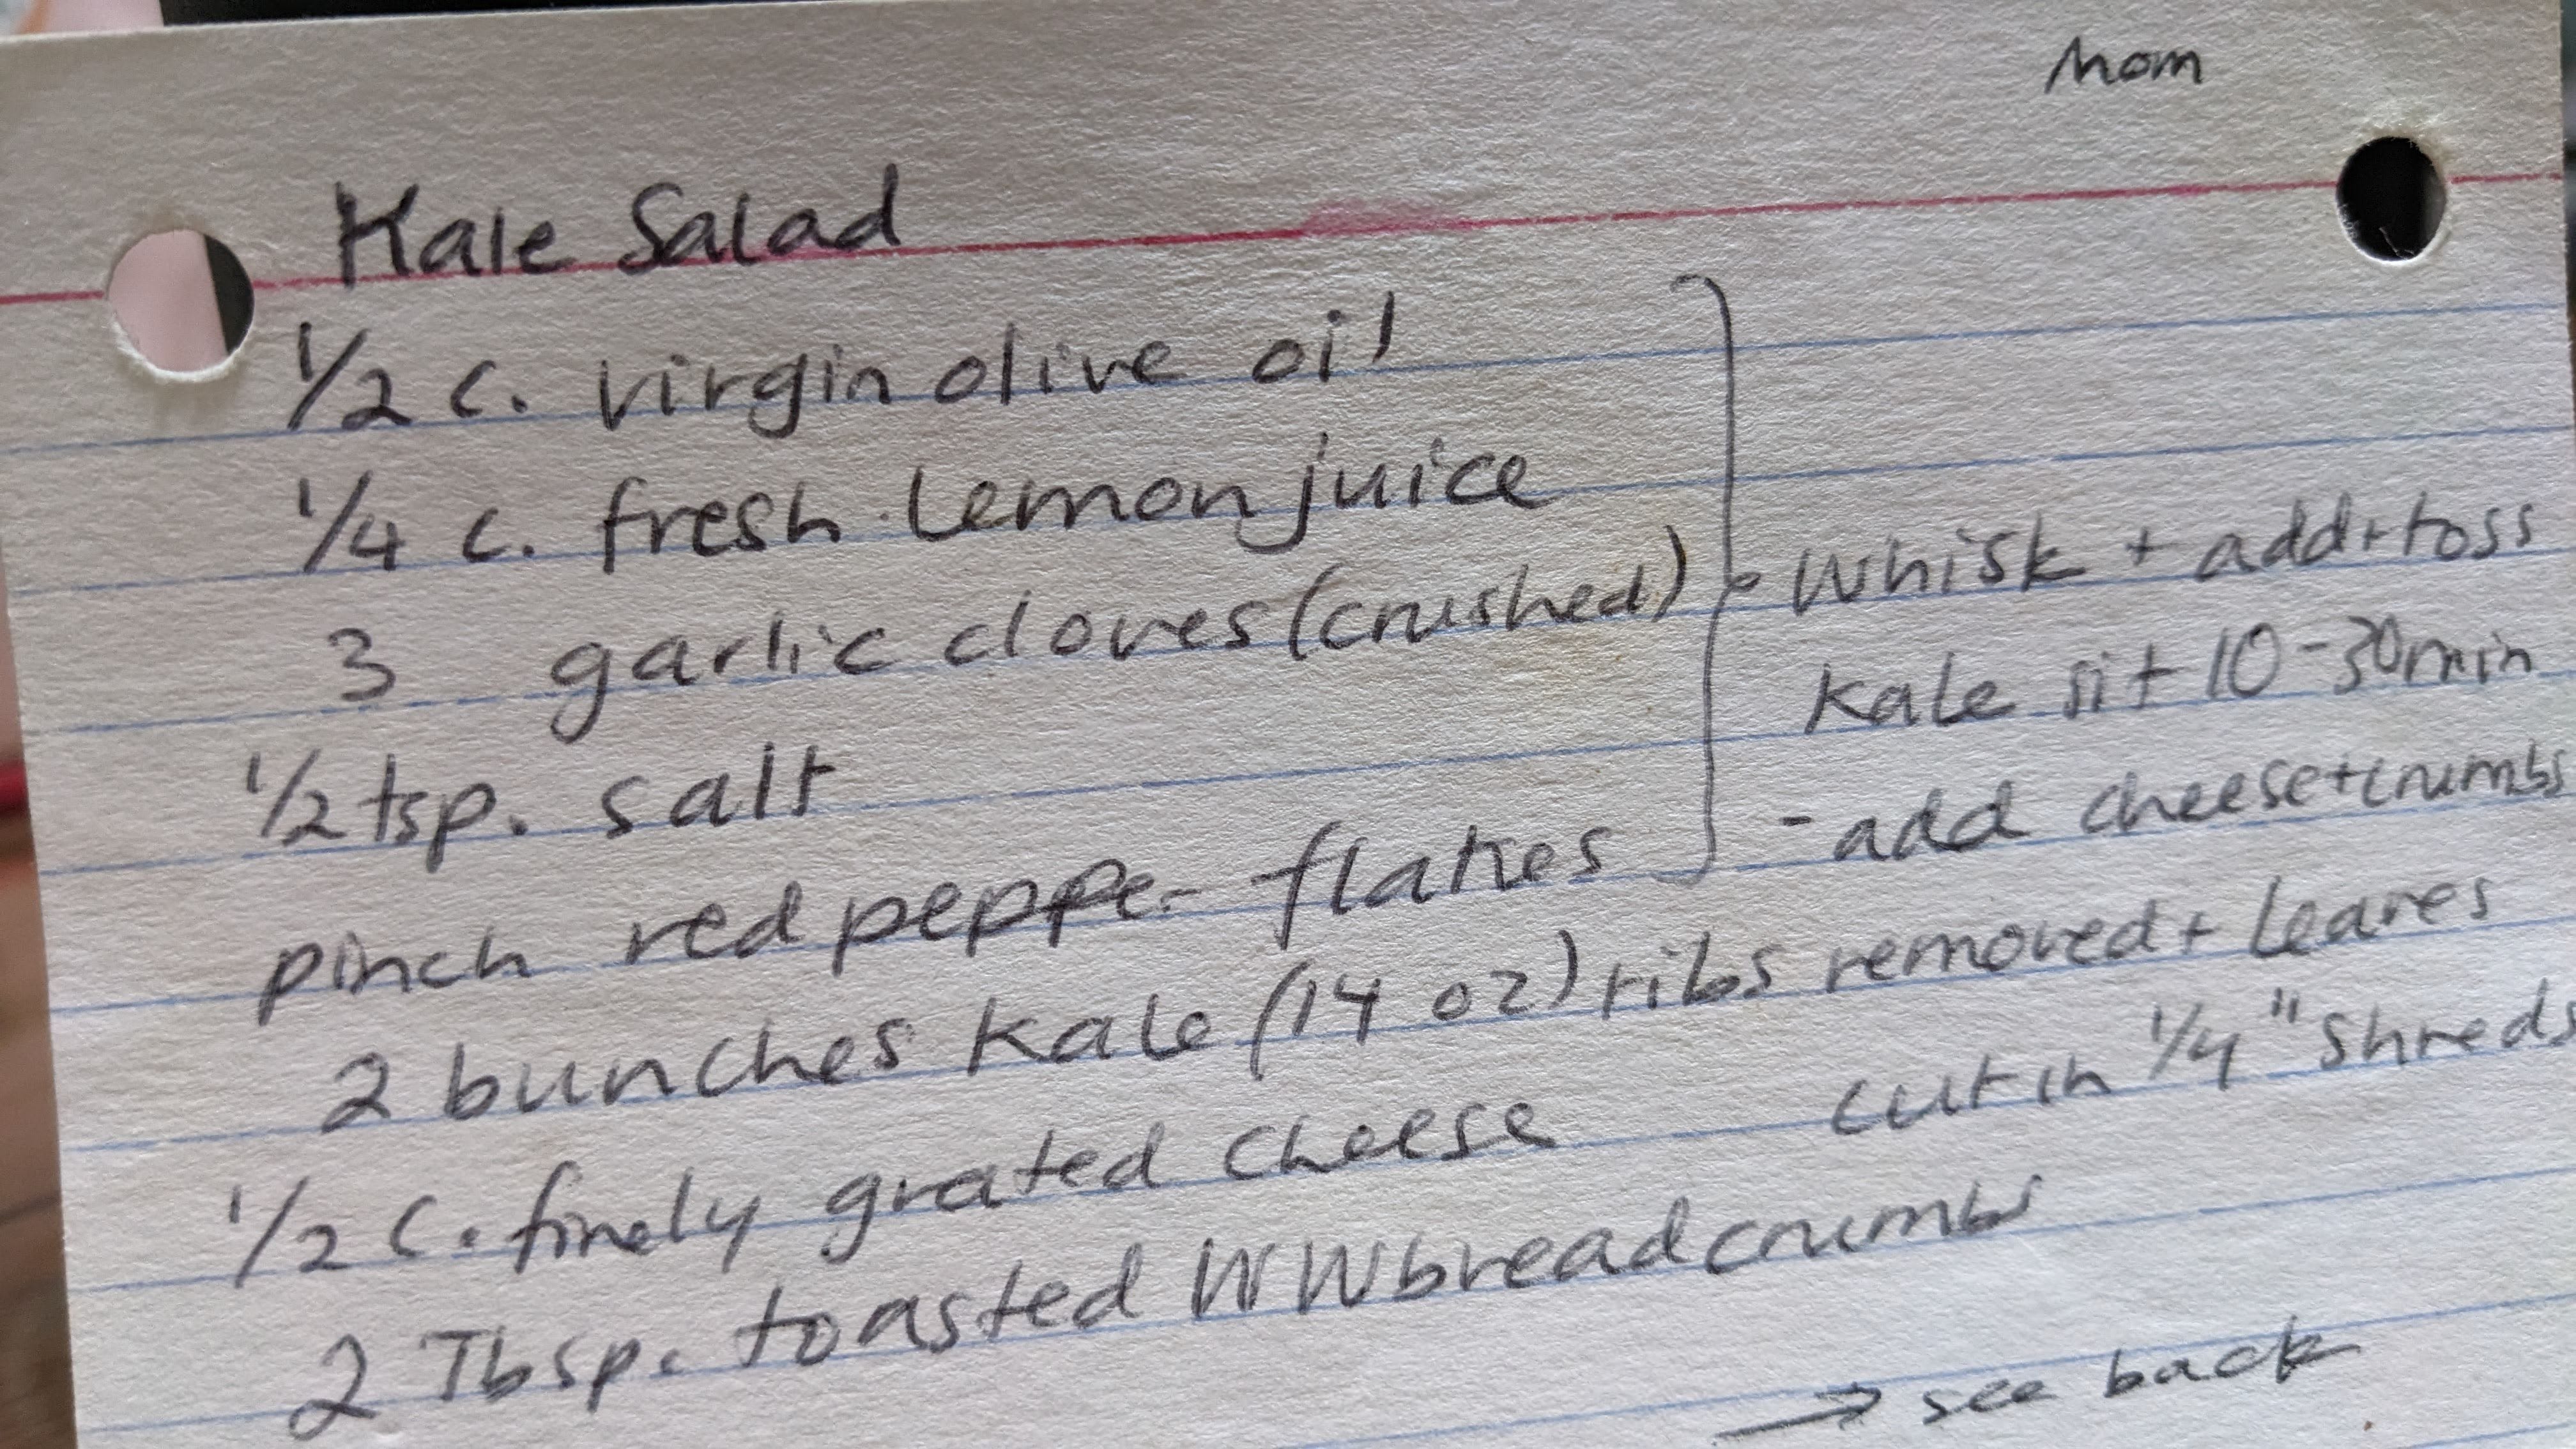 Mom
Kale Salad
1/2 c. virgin olive oil
1/4 c. fresh lemon juice
3 garlic cloves (crushed)
1/2 tsp. salt
pinch red pepper flakes
- Whisk + add + toss
kale sit 10-30 min
- add cheese + crumbs
2 bunches kale (14 oz) ribs removed + leaves
cut in 1/4" shreds
1/2 c. finely grated cheese
2 Tbsp. toasted WW bread crumbs
→ see back